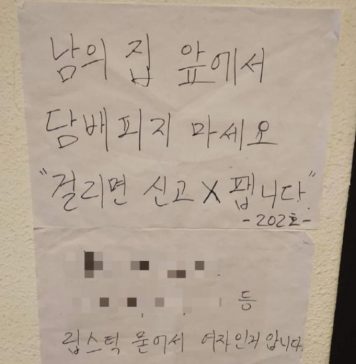 남의 집 앞에서
담배피지 마세요
"걸리면 신고 X 팹니다"
-202호-
등
립스틱 묻어서 여자인거 압니다.